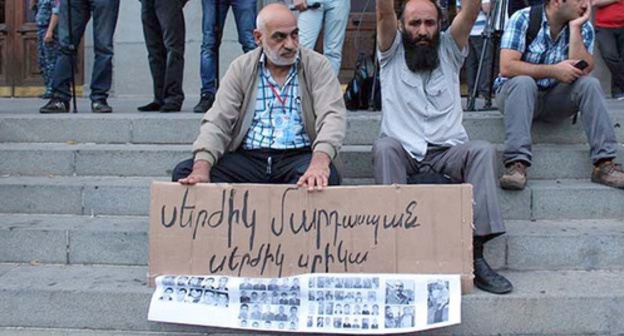 Սերժիկ Մարդասպան
Սերժիկ սրիկա